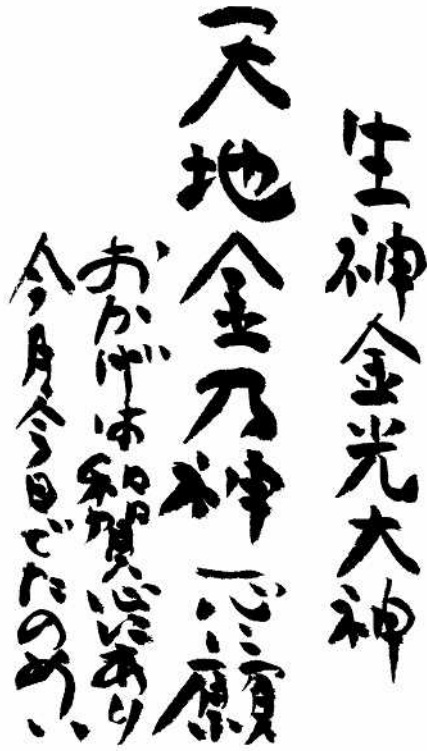 生神金光大神
天地金乃神一心ニ願
おかげは和賀心にあり
今月今日でたのめい